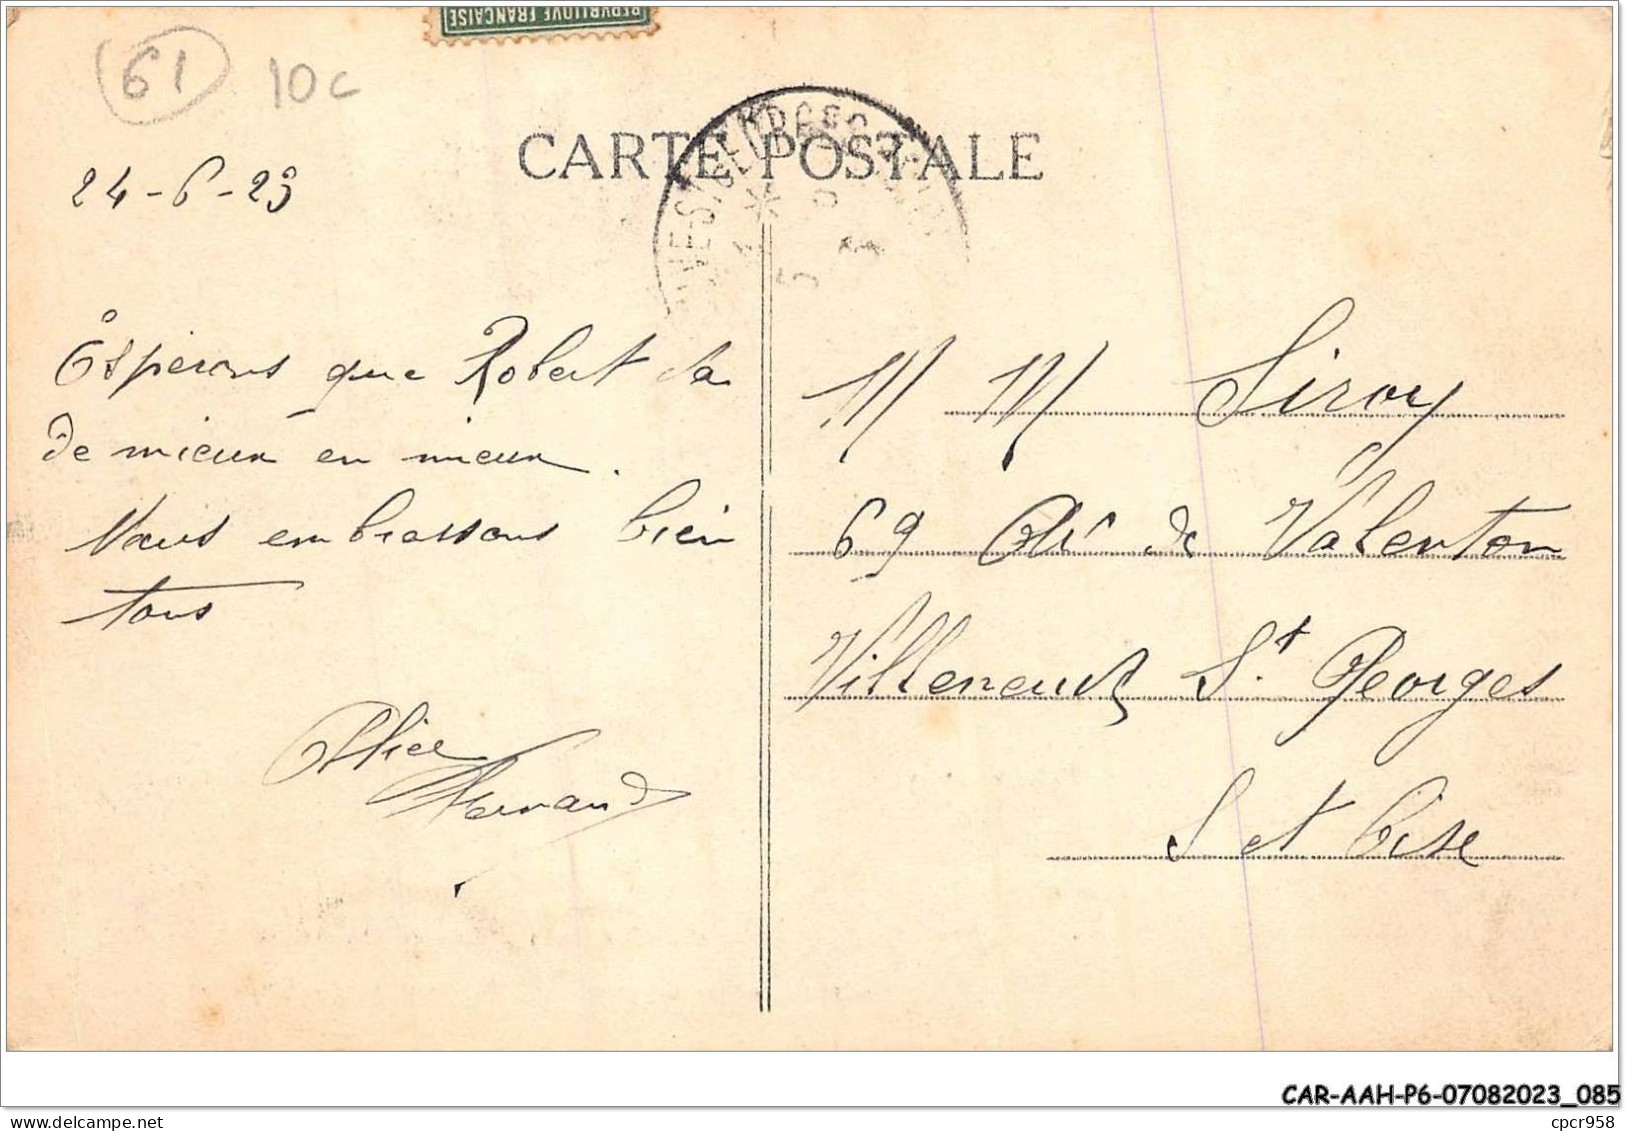 REPUBLIQUE FRANCAISE
61
10c
CARTE POSTALE
24-6-23
Espérons que Robert va
de mieux en mieux.
Vous embrassons bien
tous
Alice
Fernand
M M Siroy
69 de Valenton
Villeneuve St Georges
S et Oise
CAR-AAH-P6-07082023_085
cpcr958